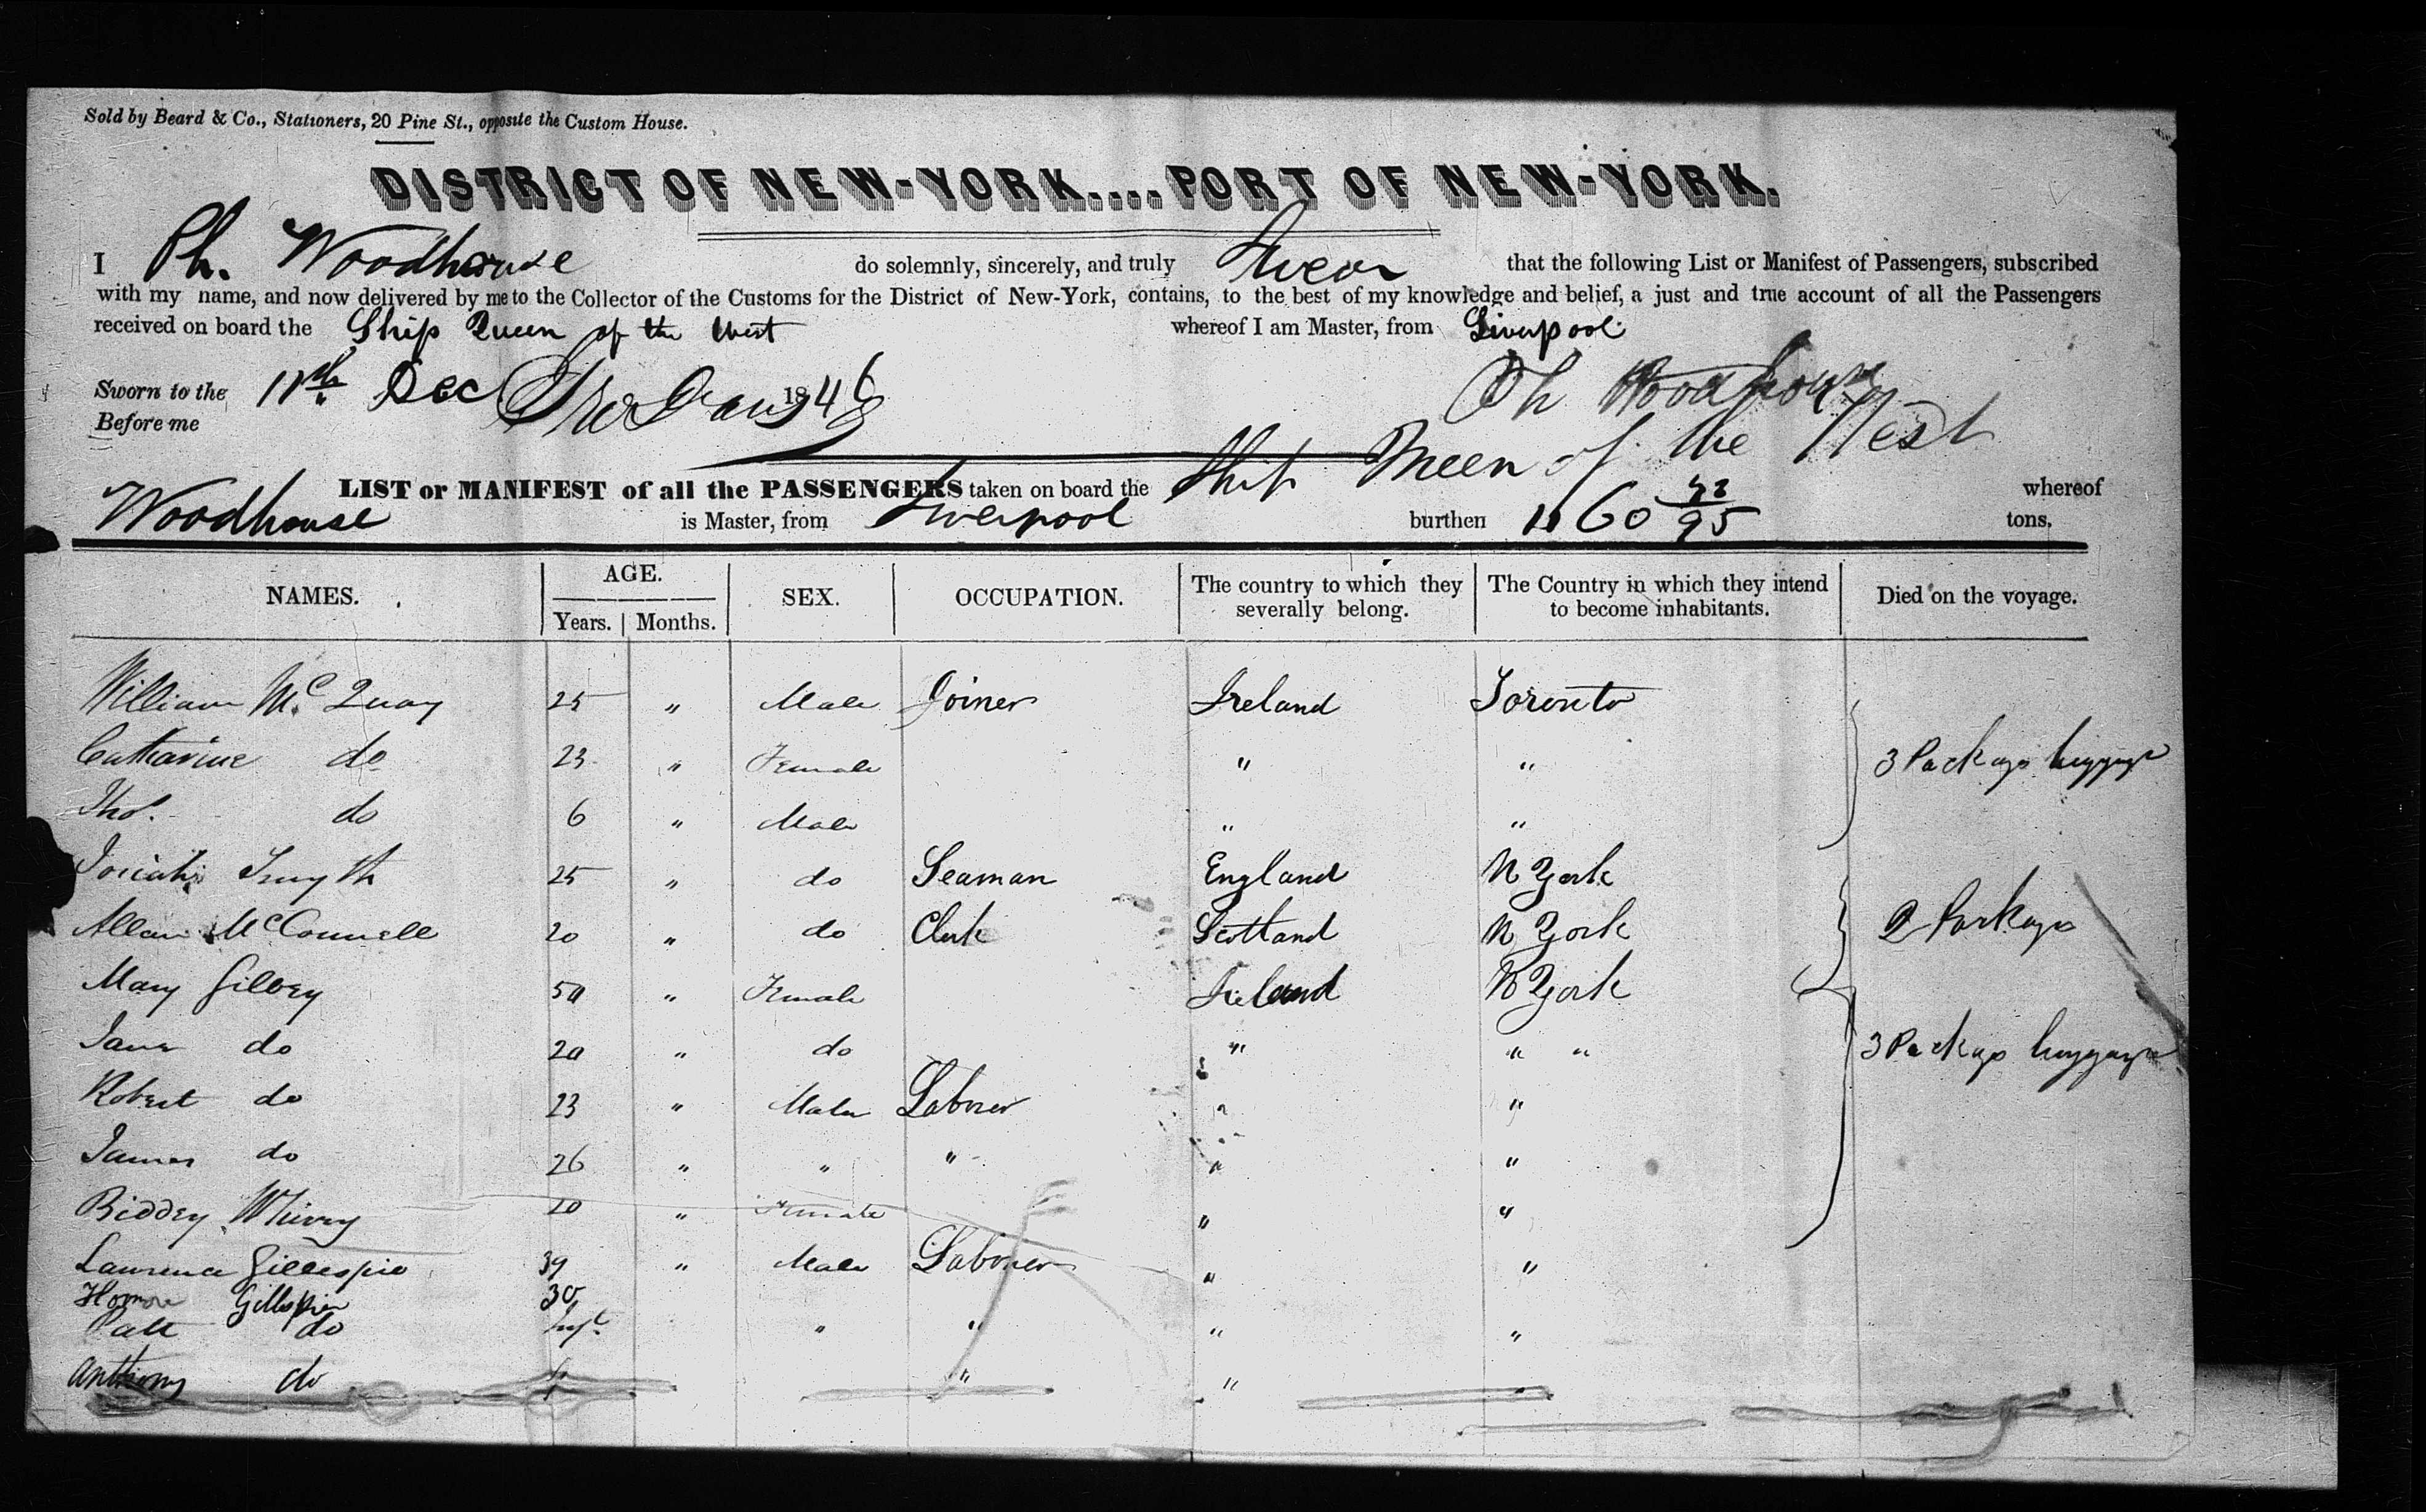 Sold by Beard & Co., Stationers, 20 Pine St., opposite the Custom House.
DISTRICT OF NEW-YORK....PORT OF NEW-YORK.
I Ph. Woodhouse do solemnly, sincerely, and truly Swear that the following List or Manifest of Passengers, subscribed
with my name, and now delivered by me to the Collector of the Customs for the District of New-York, contains, to the best of my knowledge and belief, a just and true account of all the Passengers
received on board the Ship Queen of the West whereof I am Master, from Liverpool
Sworn to the 11th Dec 1846 Ph Woodhouse
Before me
LIST or MANIFEST of all the PASSENGERS taken on board the Ship Queen of the West whereof
Woodhouse is Master, from Liverpool burthen 1160 /95 tons.
NAMES. AGE. SEX. OCCUPATION. The country to which they severally belong. The Country in which they intend to become inhabitants. Died on the voyage.
Years. Months.
William McQuay 25 " Male Joiner Ireland Toronto
Catharine do 23 " Female " " 3 Packags luggage
Thos. do 6 " Male " "
Josiah Smyth 25 " do Seaman England N York
Allan McConnell 20 " do Clerk Scotland N York 2 Packags
Mary Gilbey 50 " Female Ireland N York
Jane do 20 " do " " " 3 Packags luggage
Robert do 23 " Male Laborer " "
James do 26 " " " " "
Biddey 20 " Female " "
Laurence Gillespie 39 " Male Laborer " "
Gillespie 30
Patt do Inft " " " "
Anthony do " "